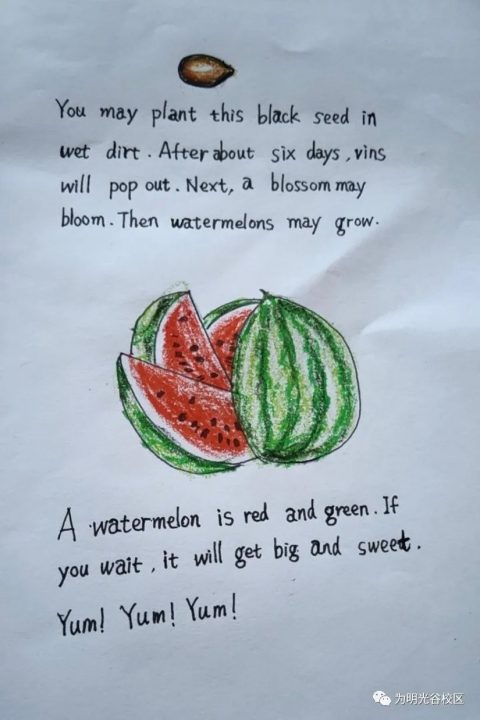 You may plant this black seed in
wet dirt. After about six days, vins
will pop out. Next, a blossom may
bloom. Then watermelons may grow.
A watermelon is red and green. If
you wait, it will get big and sweet.
Yum! Yum! Yum!
为明光谷校区